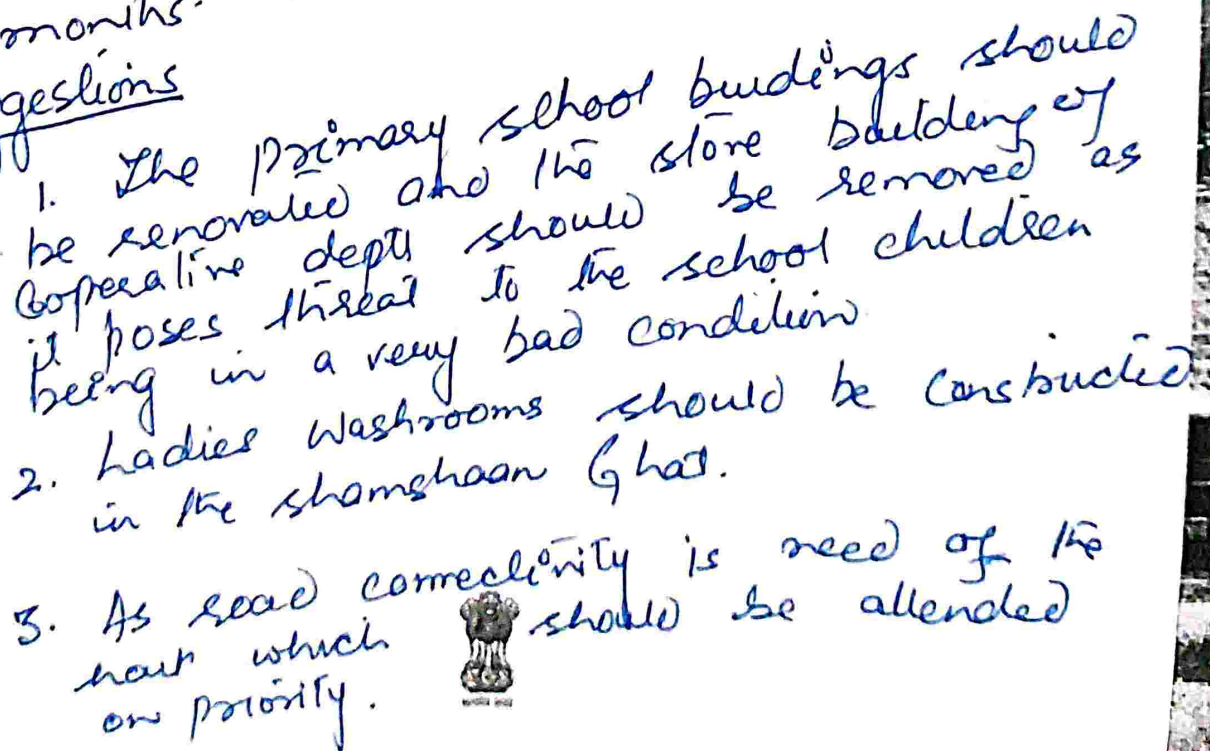 months.
gestions
1. The Primary school buildings should
be renovated and the store building of
Cooperative deptt should be removed as
it poses threat to the school children
being in a very bad condition
2. Ladies Washrooms should be Constructed
in the shamshaan Ghat.
3. As road connectivity is need of the
hour which should be attended
on priority.